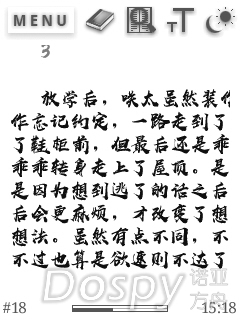 MENU
3
放学后，咲太虽然装作
作忘记约定，一路走到了
了鞋柜前，但最后还是乖
乖乖转身走上了屋顶。是
是因为想到逃了的话之后
后会更麻烦，才改变了想
想法。虽然有点不同，不
不过也算是欲速则不达了
Dospy 诺亚
方舟
#18 15:18